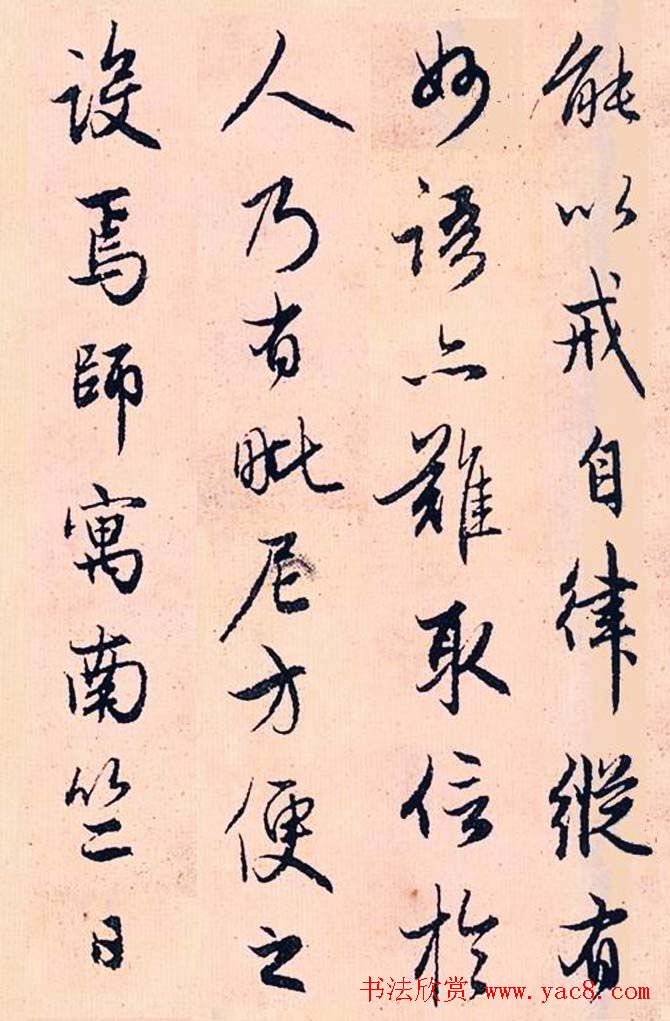 能以戒自律縱有
妙語亦難取信於
人乃有毗尼方便之
設焉師寓南竺日
书法欣赏 www.yac8.com